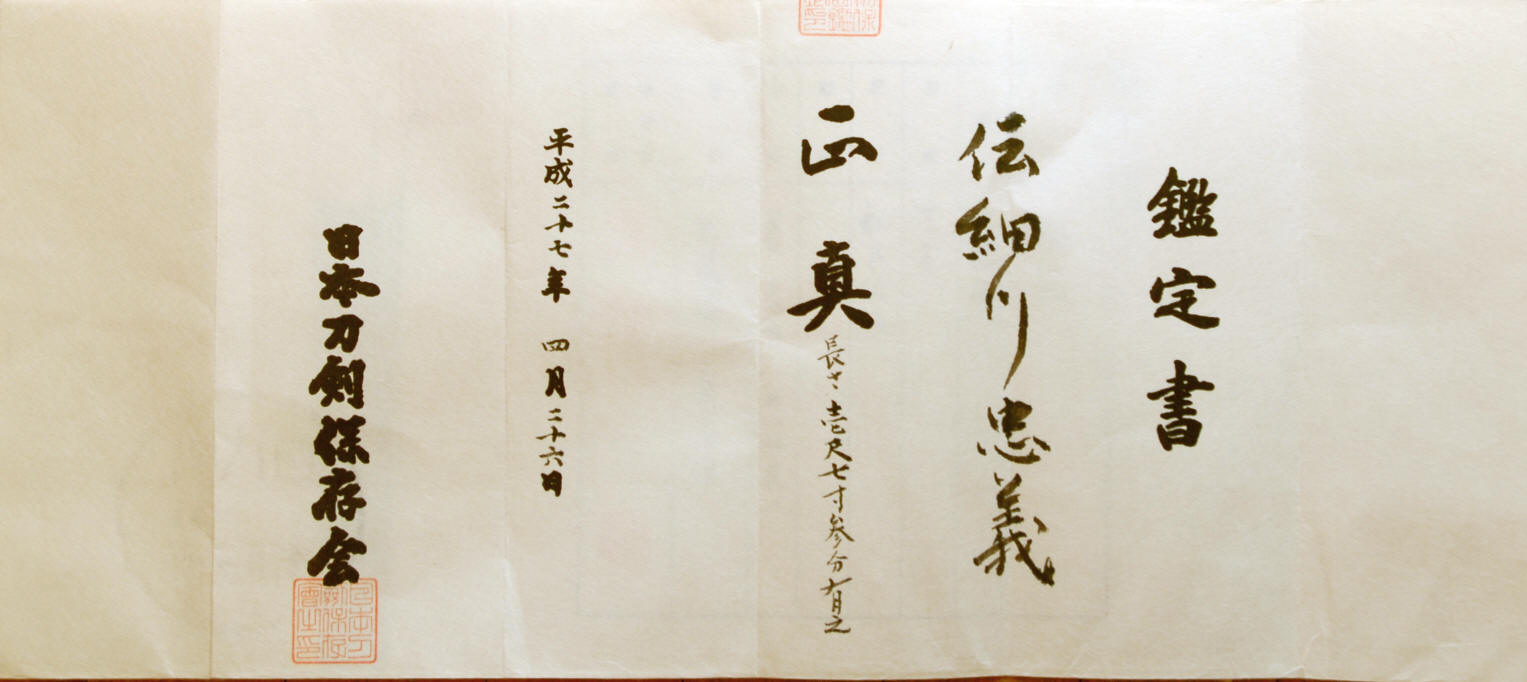 鑑定書
伝細川忠義
正真
長さ壱尺七寸参分有之
平成二十七年 四月二十六日
日本刀剣保存会